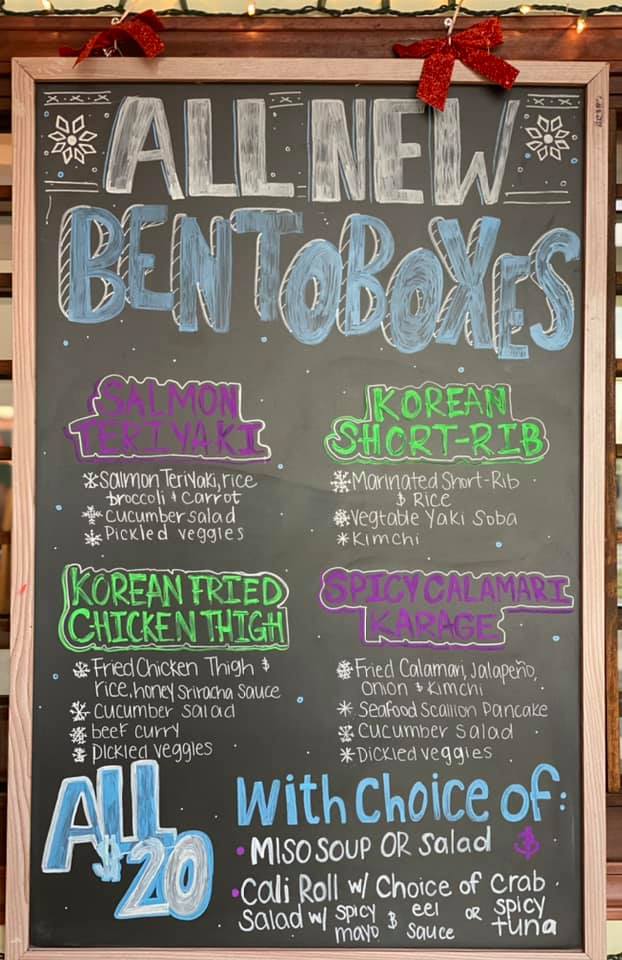 ALL NEW
BENTO BOXES
SALMON
TERIYAKI
Salmon Teriyaki, rice
broccoli & carrot
cucumber salad
Pickled veggies
KOREAN
SHORT-RIB
Marinated Short-Rib
& Rice
Vegtable Yaki Soba
Kimchi
KOREAN FRIED
CHICKEN THIGH
Fried Chicken Thigh &
rice, honey Sriracha Sauce
Cucumber Salad
beef curry
Pickled veggies
SPICY CALAMARI
KARAGE
Fried Calamari, Jalapeño,
onion & Kimchi
Seafood Scallion Pancake
Cucumber Salad
Dickled veggies
ALL
$20
With Choice of:
• MISO SOUP OR Salad
• Cali Roll w/ Choice of Crab
Salad w/ spicy mayo & eel sauce OR spicy tuna